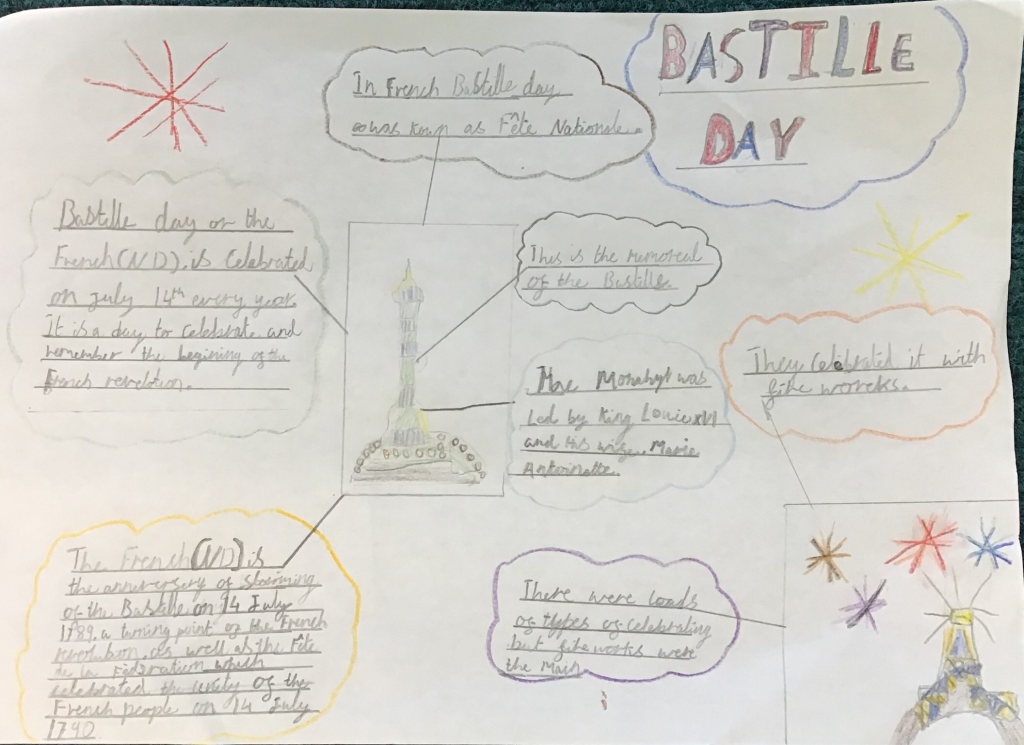 BASTILLE
DAY
In French Bastille day
was kown as Fête Nationale.
Bastille day or the
French (ND). is Celebrated
on july 14th every year.
It is a day to celebrate and
remember the begining of the
French revelotion.
This is the
of the Bastille.
The Monahgt was
Led by King Louie XVI
and His wife, Marie
Antoinatte.
They celebrated it with
fire worcks.
The French (ND) is
the anniversery of Storming
of the Bastille on 14 July
1789. a turning point of the French
revolution, as well as the Fête
de la Fédération which
celebrated the unity of the
French people on 14 July
1790
There were loads
of types of celebrating
but fireworks were
the Main